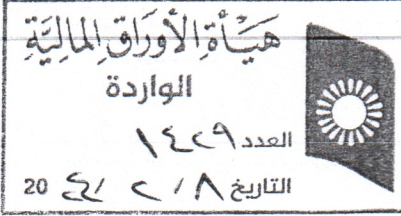 هَيْأَةِ الأَوْرَاقِ المَالِيَّةِ
الواردة
العدد ١٤٢٩
التاريخ ٨ / ٢ / ٢٤ 20